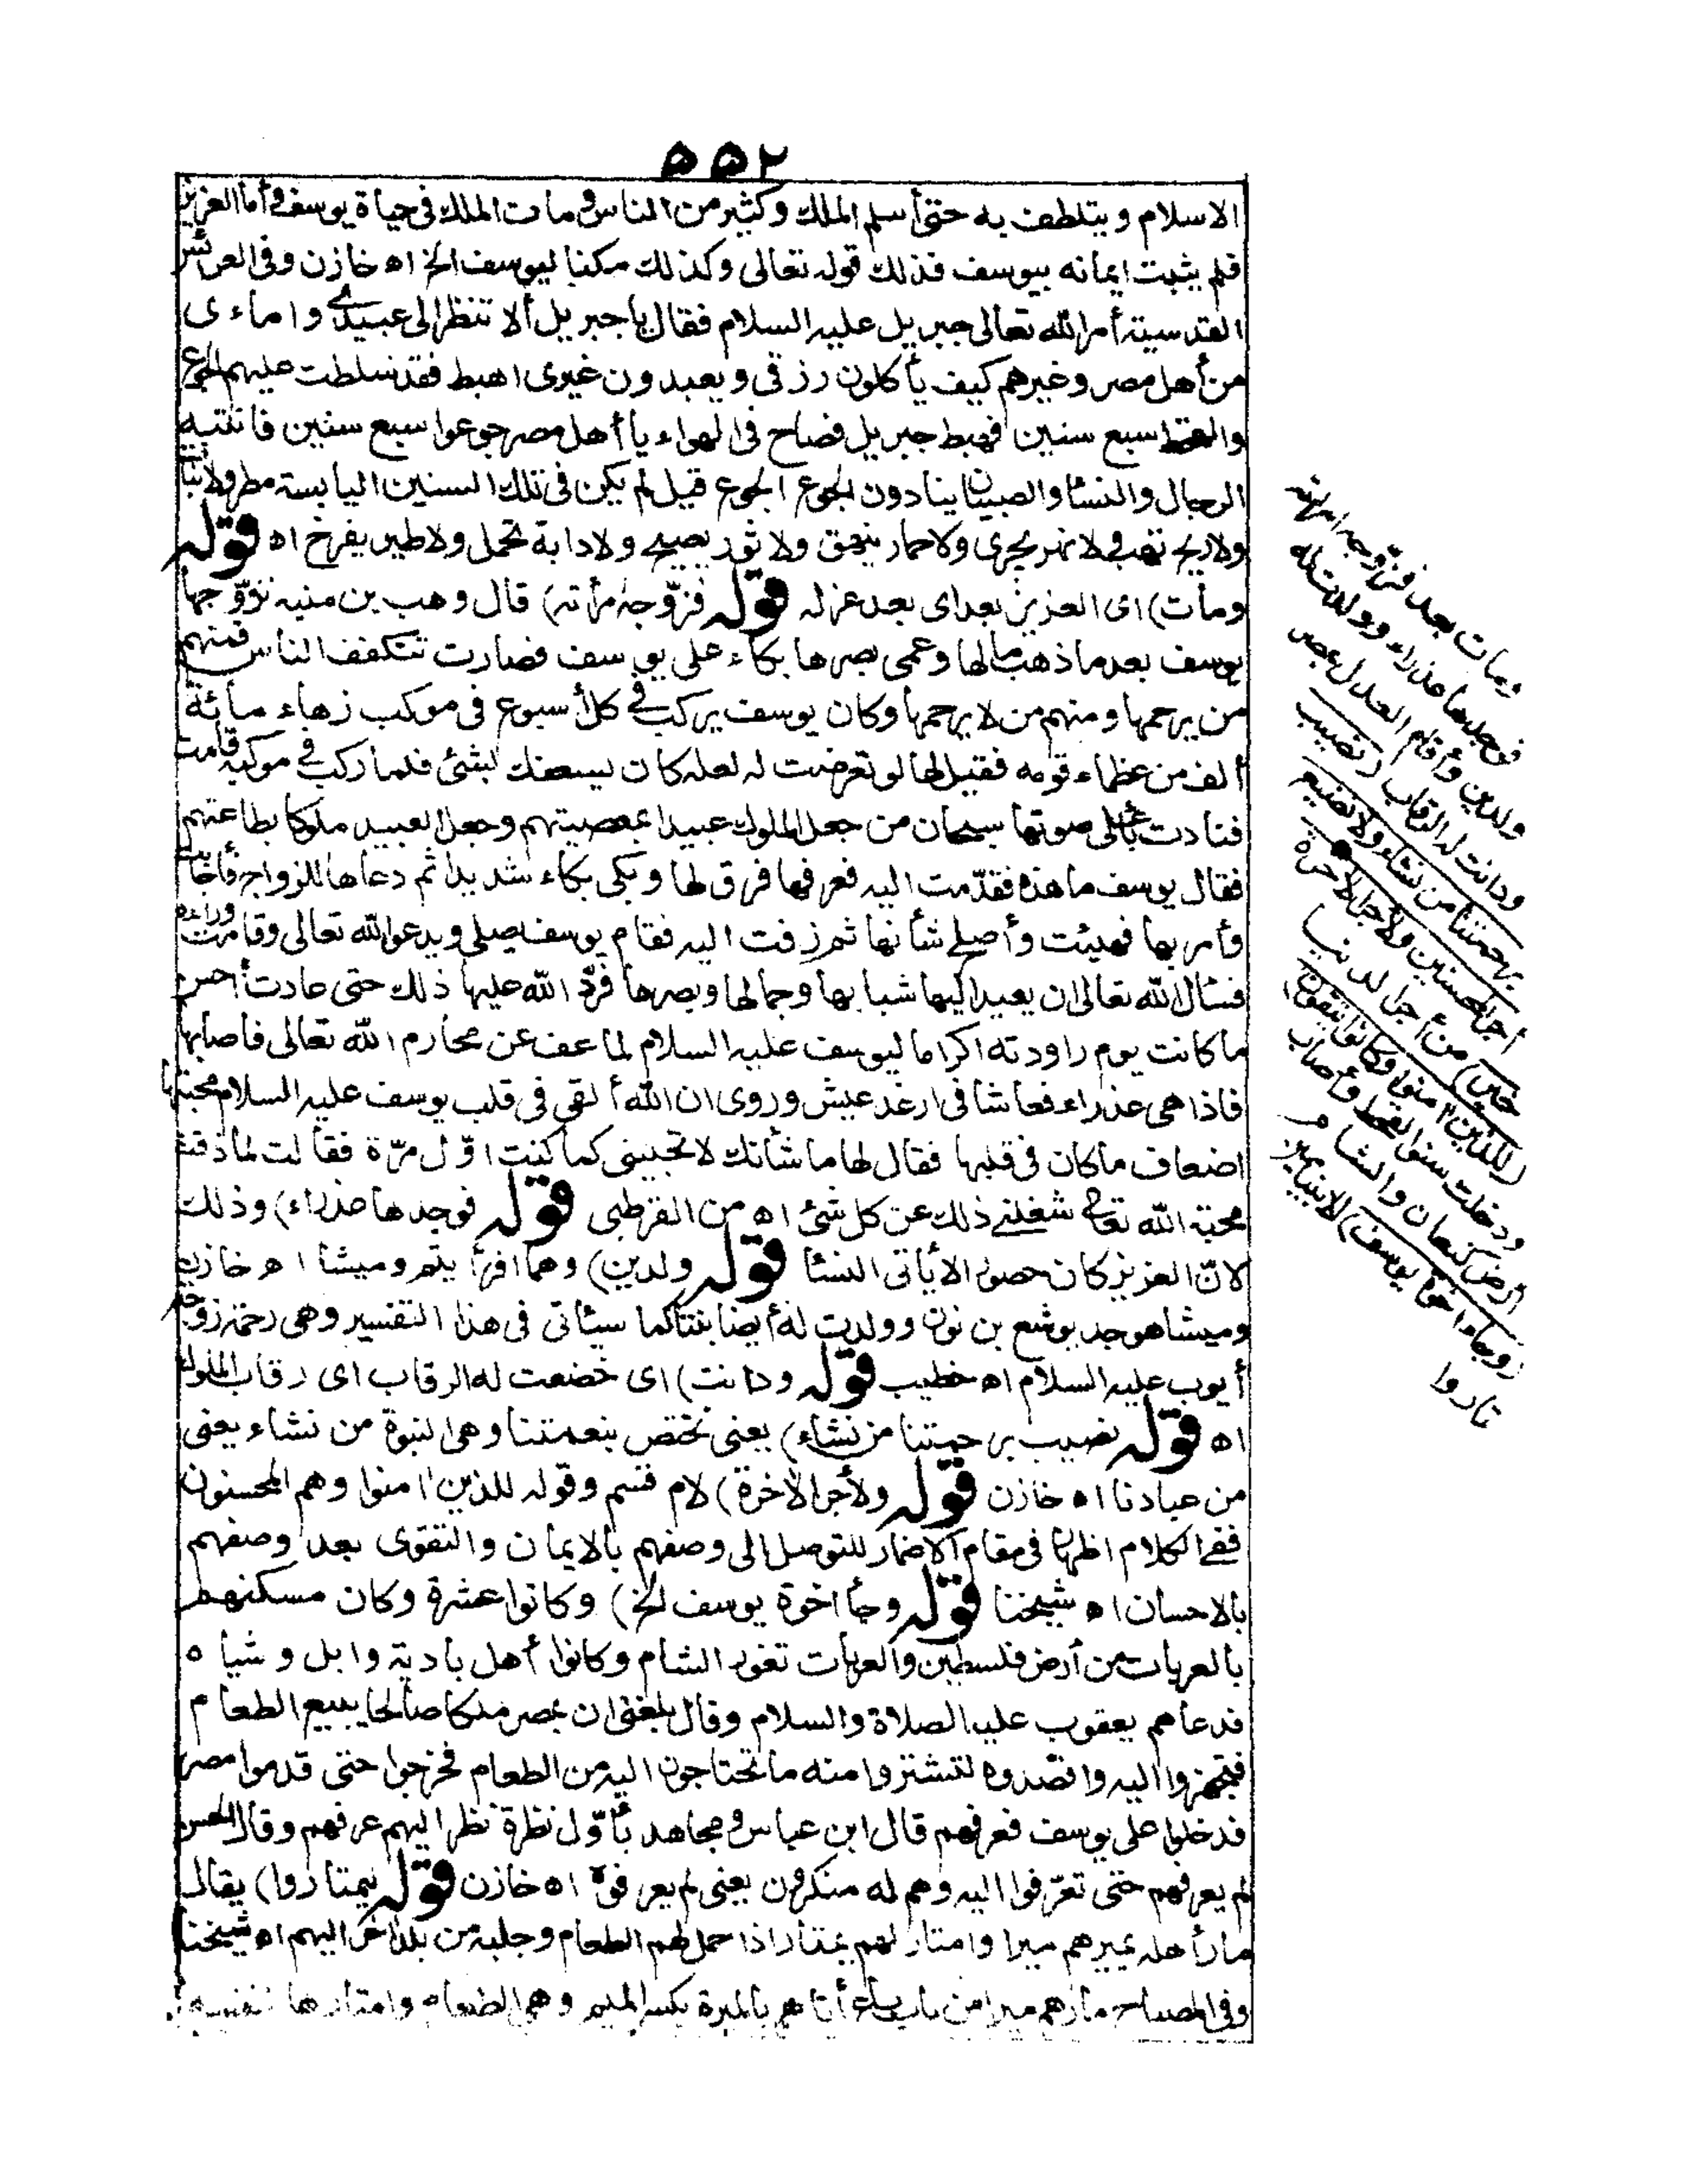 ٥٥٢
الاسلام ويتلطف به حتى أسلم الملك وكثير من الناس ومات الملك فى حياة يوسف وأما العزيز
فلم يثبت ايمانه بيوسف فذلك قوله تعالى وكذلك مكنا ليوسف الخ اه خازن وفى العرائس
القدسية أمر الله تعالى جبريل عليه السلام فقال يا جبريل ألا تنظر الى عبيدى واماءى
من أهل مصر وغيرهم كيف يأكلون رزقى ويعبدون غيرى اهبط فقد سلطت عليهم الجوع
والقحط سبع سنين فهبط جبريل فصاح فى الهواء يا أهل مصر جوعوا سبع سنين فانتبه
الرجال والنسا والصبيان ينادون الجوع الجوع قيل لم يكن فى تلك السنين اليابسة مطر ولا نبات
ولا ريح تهب ولا نهر يجرى ولا حمار ينهق ولا ثور يصيح ولا دابة تحمل ولا طير يفرخ اه قوله
ومات) اى العزيز بعد اى بعد عزله قوله فزوّجه امرأته) قال وهب بن منبه تزوّجها
يوسف بعد ما ذهب مالها وعمى بصرها بكاء على يوسف فصارت تتكفف الناس فمنهم
من يرحمها ومنهم من لا يرحمها وكان يوسف يركب فى كل أسبوع فى موكب زهاء مائة
ألف من عظماء قومه فقيل لها لو تعرضت له لعله كان يسعفك بشئ فلما ركب فى موكبه قامت
فنادت بأعلى صوتها سبحان من جعل الملوك عبيدا بمعصيتهم وجعل العبيد ملوكا بطاعتهم
فقال يوسف ما هذه فقدّمت اليه فعرفها فرق لها وبكى بكاء شديدا ثم دعاها للزواج فأجابت
وأمر بها فهيئت وأصلح شأنها ثم زفت اليه فقام يوسف يصلى ويدعو الله تعالى وقامت وراءه
فسأل الله تعالى ان يعيد اليها شبابها وجمالها وبصرها فردّ الله عليها ذلك حتى عادت أحسن
ما كانت يوم راودته اكراما ليوسف عليه السلام لما عف عن محارم الله تعالى فأصابها
فاذا هى عذراء فعاشا فى ارغد عيش وروى ان الله ألقى فى قلب يوسف عليه السلام محبتها
اضعاف ما كان فى قلبها فقال لها ما شأنك لا تحبينى كما كنت اوّل مرّة فقالت لما ذقت
محبة الله تعالى شغلنى ذلك عن كل شئ اه من القرطبى قوله فوجدها عذراء) وذلك
لانّ العزيز كان حصورا لا يأتى النسا قوله ولدين) وهما افرأيتم وميشا اه خازن
وميشا هو جد يوشع بن نون وولدت له أيضا بنتا كما سيأتى فى هذا التفسير وهى رحمة زوجة
أيوب عليه السلام اه خطيب قوله ودانت) اى خضعت له الرقاب اى رقاب الملوك
اه قوله نصيب برحمتنا من نشاء) يعنى نختص بنعمتنا وهى النبوة من نشاء يعنى
من عبادنا اه خازن قوله ولأجر الآخرة) لام قسم وقوله للذين آمنوا وهم المحسنون
ففى الكلام اظهار فى مقام الاضمار للتوصل الى وصفهم بالايمان والتقوى بعد وصفهم
بالاحسان اه شيخنا قوله وجاء اخوة يوسف الخ) وكانوا عشرة وكان مسكنهم
بالعربات من أرض فلسطين والعربات ثغور الشام وكانوا أهل بادية وابل وشياه
فدعاهم يعقوب عليه الصلاة والسلام وقال بلغنى ان بمصر ملكا صالحا يبيع الطعام
فتجهزوا اليه واقصدوه لتشتروا منه ما تحتاجون اليه من الطعام فخرجوا حتى قدموا مصر
فدخلوا على يوسف فعرفهم قال ابن عباس ومجاهد بأوّل نظرة نظر اليهم عرفهم وقال الحسن
لم يعرفهم حتى تعرّفوا اليه وهم له منكرون يعنى لم يعرفوه اه خازن قوله ليمتاروا) يقال
مار أهله يميرهم ميرا وامتار لهم يمتار اذا حمل لهم الطعام وجلبه من بلد آخر اليهم اه شيخنا
وفى المصباح مارهم ميرا من باب باع أتاهم بالميرة بكسر الميم وهى الطعام وامتارها لنفسه
ومات بعد فزوجه امرأته
فوجدها عذراء وولدت له
ولدين وأقام العدل بمصر
ودانت له الرقاب (نصيب
برحمتنا من نشاء ولا نضيع
أجر المحسنين ولأجر الآخرة
خير) من أجر الدنيا
(للذين آمنوا وكانوا يتقون)
ودخلت سنو القحط وأصاب
أرض كنعان والشام
(وجاء اخوة يوسف) الا بنيامين
تاروا